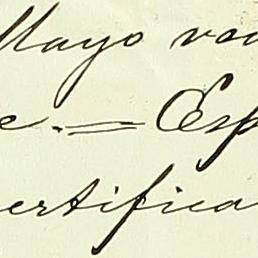 Mayo ve
e.= Esp
ertifica